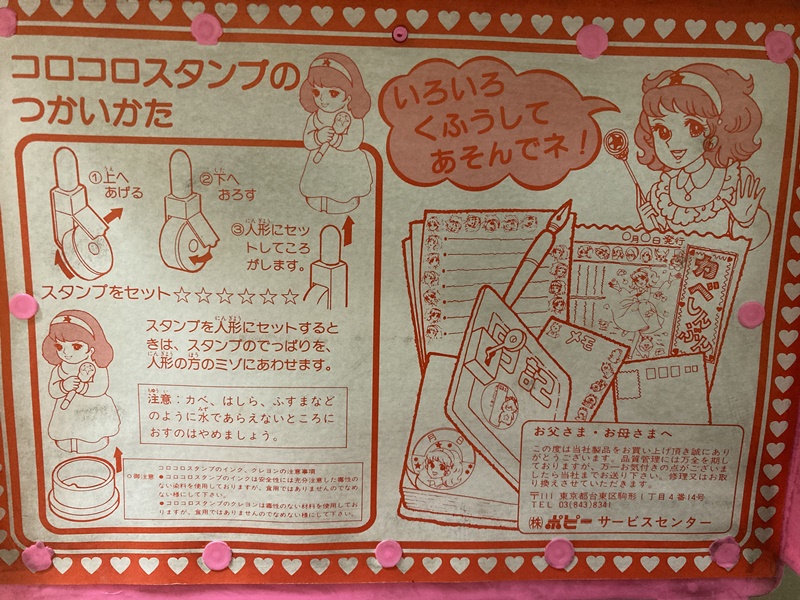 コロコロスタンプの
つかいかた
①上へ
あげる
②下へ
おろす
③人形にセッ
トしてころ
がします。
スタンプをセット☆☆☆☆☆☆
スタンプを人形にセットすると
きは、スタンプのでっぱりを、
人形の方のミゾにあわせます。
注意：カベ、はしら、ふすまなど
のように水であらえないところに
おすのはやめましょう。
コロコロスタンプのインク、クレヨンの注意事項
○御注意
●コロコロスタンプのインクは安全性には充分注意した毒性の
ない染料を使用しておりますが、食用ではありませんのでなめ
ない様にして下さい。
●コロコロスタンプのクレヨンは毒性のない材料を使用してお
りますが、食用ではありませんのでなめない様にして下さい。
いろいろ
くふうして
あそんでネ！
〇月〇日発行
かべしんぶん
メモ
日記
月 日
お父さま・お母さまへ
この度は当社製品をお買い上げ頂き誠にあり
がとうございます。品質管理には万全を期し
ておりますが、万一お気付きの点がございま
したら当社までお送り下さい。修理又はお取
り換えさせていただきます。
〒111 東京都台東区駒形1丁目4番14号
TEL 03(843)8341
㈱ポピー サービスセンター